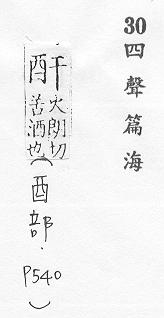 30四聲篇海
酐
火朗切
苦酒也
(酉部.P540)